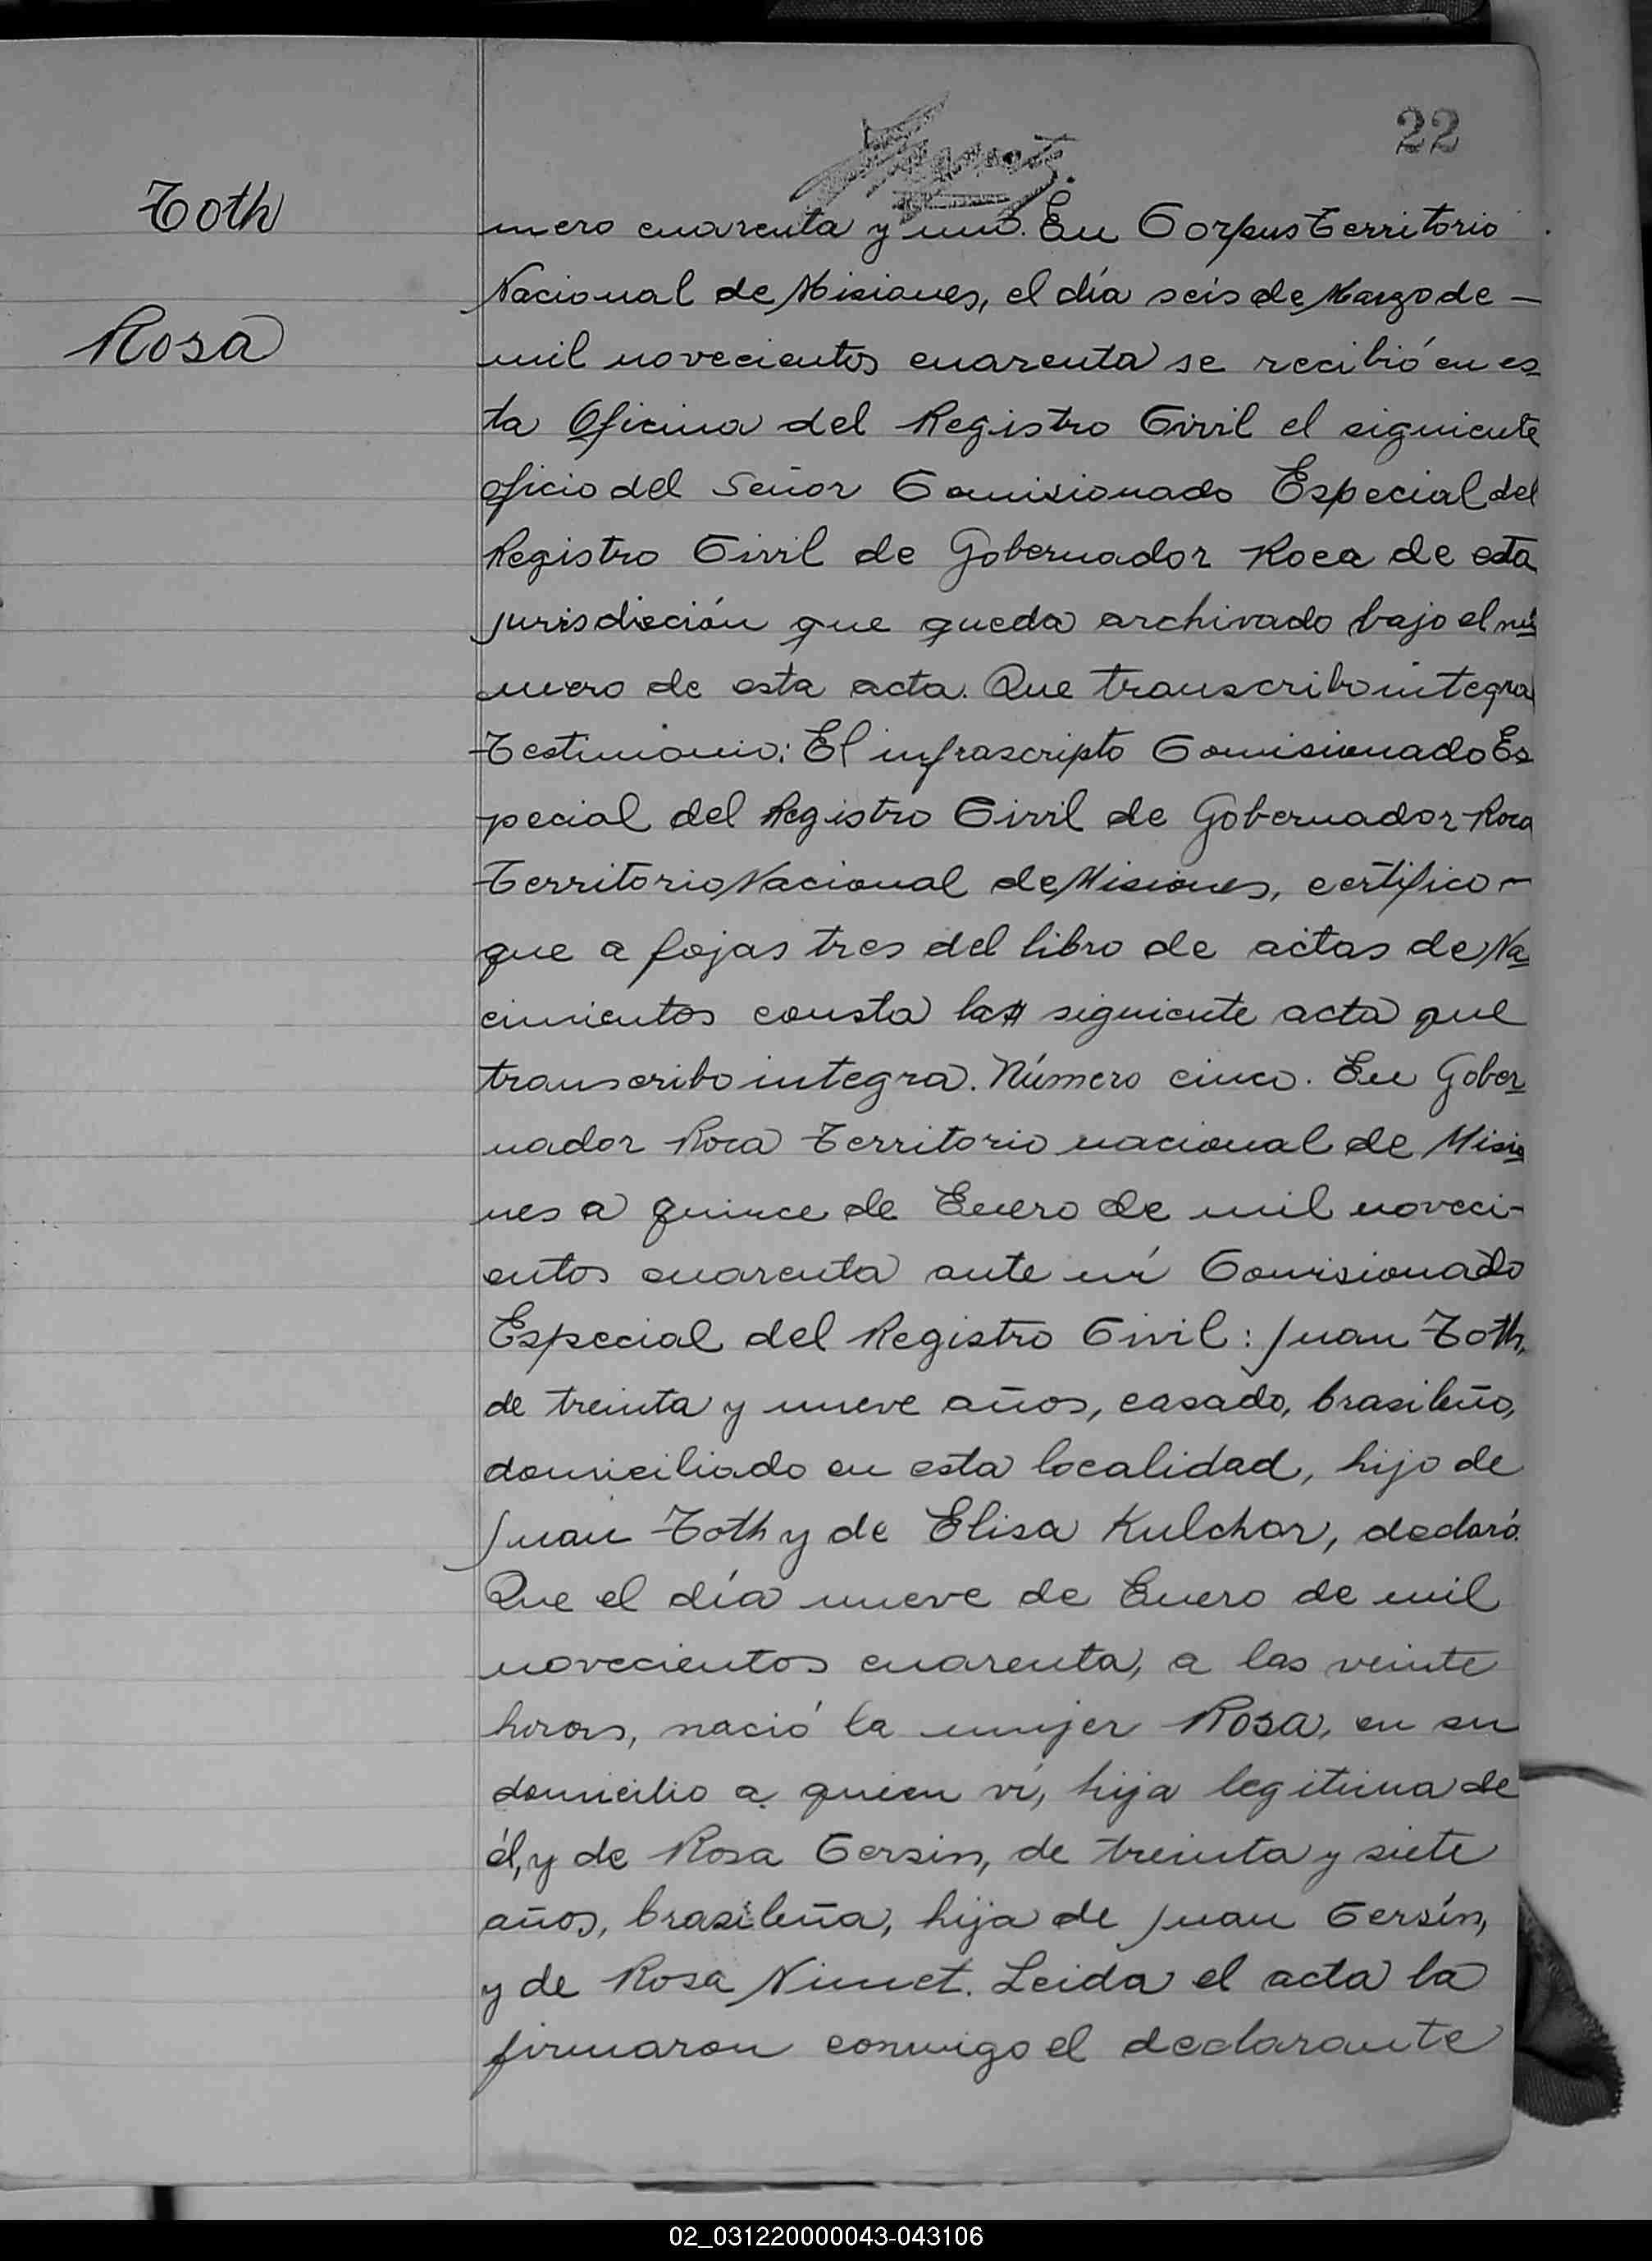 22
Toth
Rosa
mero cuarenta y uno. En Corpus Territorio
Nacional de Misiones, el día seis de Marzo de —
mil novecientos cuarenta se recibió en es
ta Oficina del Registro Civil el siguiente
oficio del Señor Comisionado Especial del
Registro Civil de Gobernador Roca de esta
jurisdicción que queda archivado bajo el nú
mero de esta acta. Que transcribo integra
Testimonio: El infrascripto Comisionado Es
pecial del Registro Civil de Gobernador Roca
Territorio Nacional de Misiones, certifico —
que a fojas tres del libro de actas de Na
cimientos consta la siguiente acta que
transcribo integra. Número cinco. En Gober
nador Roca Territorio nacional de Misio
nes a quince de Enero de mil noveci-
entos cuarenta ante mí Comisionado
Especial del Registro Civil: Juan Toth,
de treinta y nueve años, casado, brasileño,
domiciliado en esta localidad, hijo de
Juan Toth y de Elisa Kulchar, declaró.
Que el día nueve de Enero de mil
novecientos cuarenta, a las veinte
horas, nació la mujer Rosa, en su
domicilio a quien ví, hija legitima de
él, y de Rosa Cersin, de treinta y siete
años, brasileña, hija de Juan Cersín,
y de Rosa Nimet. Leida el acta la
firmaron conmigo el declarante
02_031220000043-043106